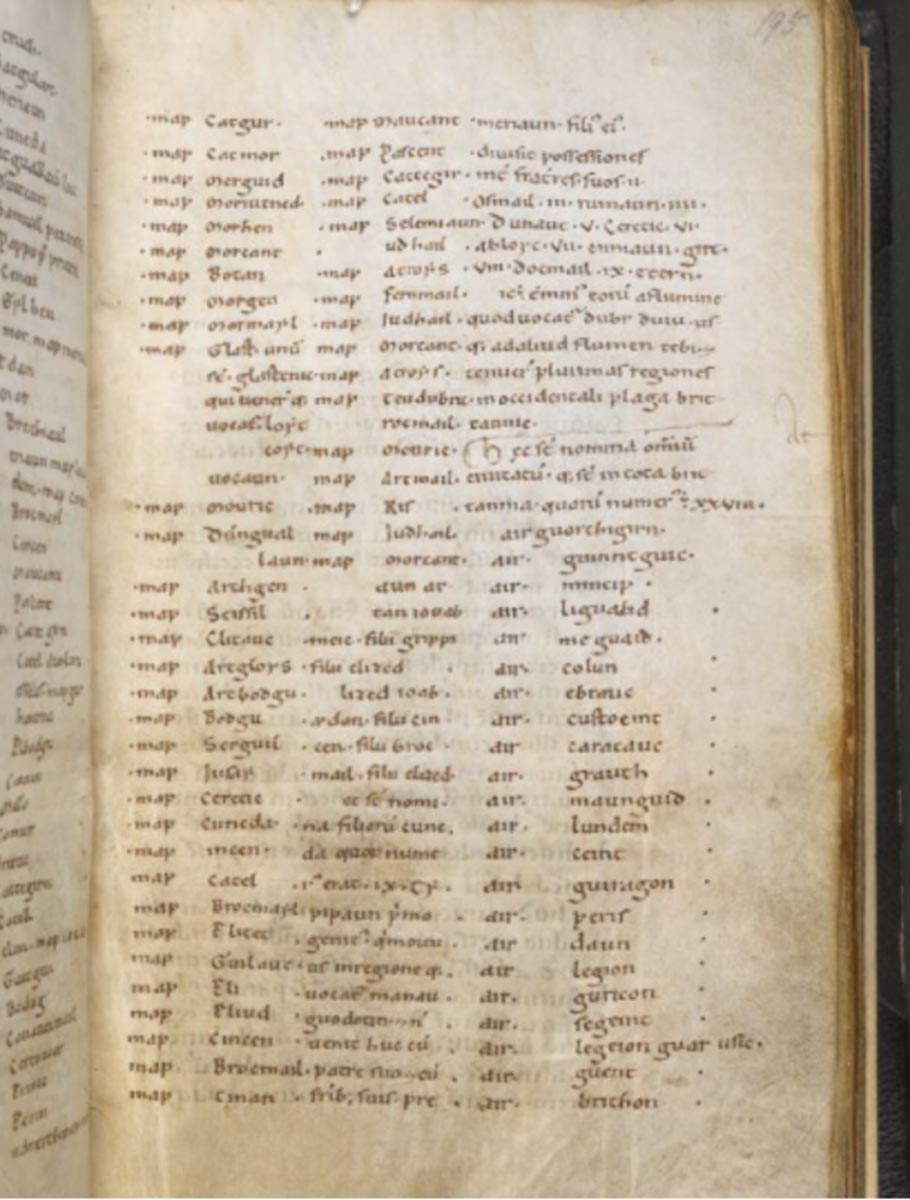 195
map Catgur. map Maucant meriaun. filiꝰ eiꝰ.
map Catmor map Pascent diuisit possessiones
map Merguid map Cattegir. int̄ fratres suos. ii
map Moriutned map Catel Osmail. iii. rumaun. iiii.
map Morhen map Selemiaun Dunaut. v. Ceretic. vi.
map Morcant iudhail abloyc. vii. enniaun. girt.
map Botan map Atroys viii. docmail. ix. etern.
map Morgen map fernmail. iste ē
map Mormayl map Iudhail quod uocat̄ dubr duiu. us
map Glast. unū map Morcant. q; ad aliud flumen tebi
sē. glastenic map Atroys. tenuer̄ plurimas regiones
qui uener̄ q; map Teudubric in occidentali plaga brit
uocat̄. loyt rocmail. tannie.
coyt. map Mouric. Hec sē nomina omīū
map Artmail. ciuitatū. q; sē in tota brit
map Mouric map Ris tannia. quarū numerꝰ ÷ xxviii.
map Dungual map Iudhail. cair guorthigirn.
laun map Morcant. cair guinntguic.
map Arthgen aun ar cair mincip
map Seissil tan iouab cair ligualid
map Clitauc filii grippi cair meguaid.
map Artgloys filii elized cair colun
map Artbodgu. lized ioab. cair ebrauc
map Bodgu ydon. filii cin cair custoeint
map Serguil cen. filii broc cair caratauc
map Iusay mail. filii elized cair grauth
map Ceretic. et sē nomi cair maunguid
map Cuneda. na filiorū cune. cair lundem
map incen. da quor̄ nume cair ceint
map Catel rꝰ erat. ix. Ty. cair guiragon
map Brocmayl. pipaun p̄mo. cair peris
map Elitet genitꝰ q̄ moriu. cair daun
map Guilauc. us in regione q; cair legion
map Eli uocat̄ manau cair guricon
map Eliud guodotin ⁊ n̄ cair segeint
map Cincen uenit huc cū cair legeion guar usic.
map Brocmail. patre suo. ⁊ cū. cair guent
map Cinan frīb; suis. pre cair brithon